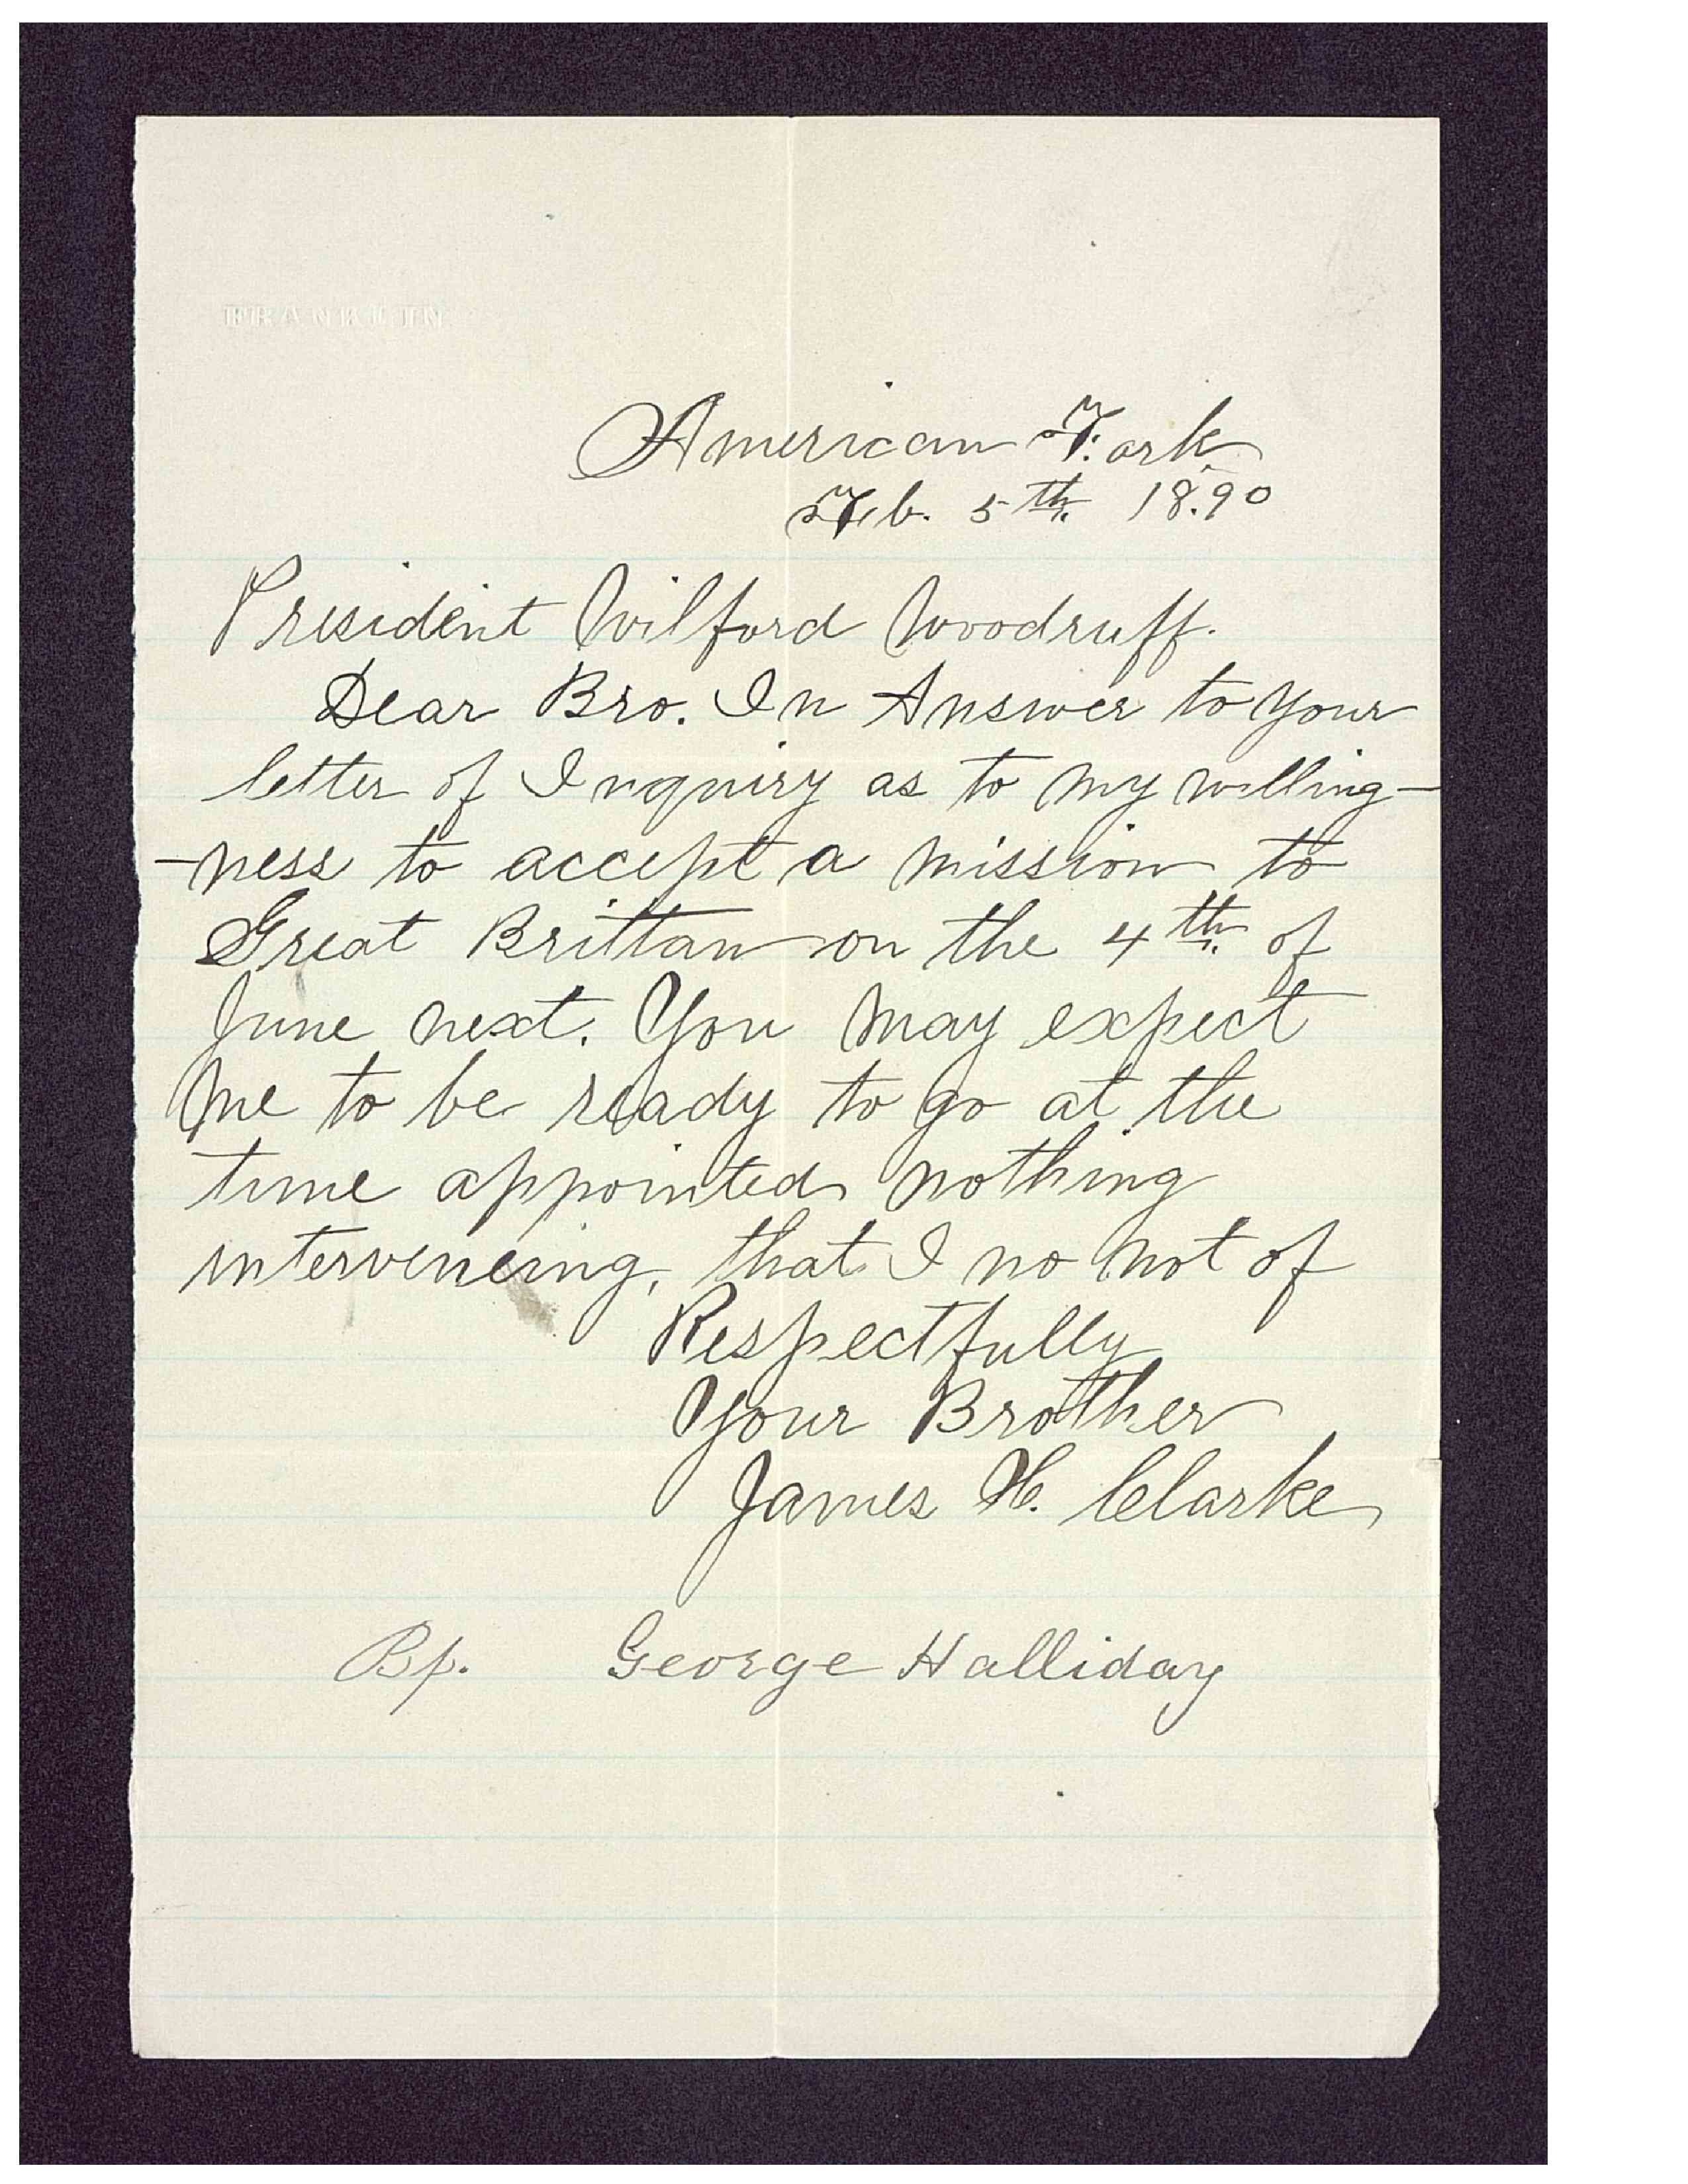 FRANKLIN
American Fork
Feb. 5th. 18.90
President Wilford Woodruff.
Dear Bro. In Answer to Your
letter of Inquiry as to my willing-
-ness to accept a mission to
Great Brittan on the 4th. of
June next. You may expect
me to be ready to go at the
time appointed nothing
interveneing, that I no not of
Respectfully
Your Brother
James H. Clarke
Bp. George Halliday